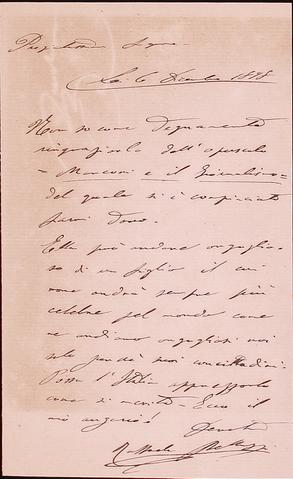 Li 6 Dicembre 1878
Non so come degnamente
ringraziarla dell'opuscolo
— Manzoni e il
del quale si è compiaciuto
farmi dono.
Ella può andare orgoglio-
so di un figlio il cui
nome andrà sempre più
celebre pel mondo come
ne andiamo orgogliosi noi
suoi concittadini.
Possa l'Italia apprezzarlo
come si merita — Ecco il
mio augurio!
Devoto